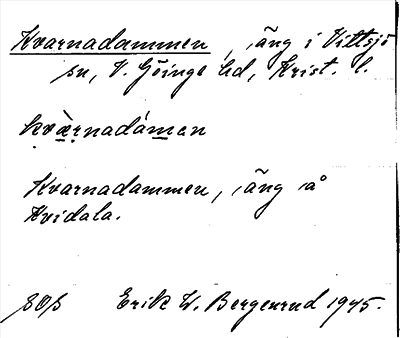 Kvarnadammen, äng i Vittsjö
sn, V. Göinge hd, Krist. l.
kvàrnadámen
Kvarnadammen, äng å
Hvidala.
Erik W. Bergenrud 1945.